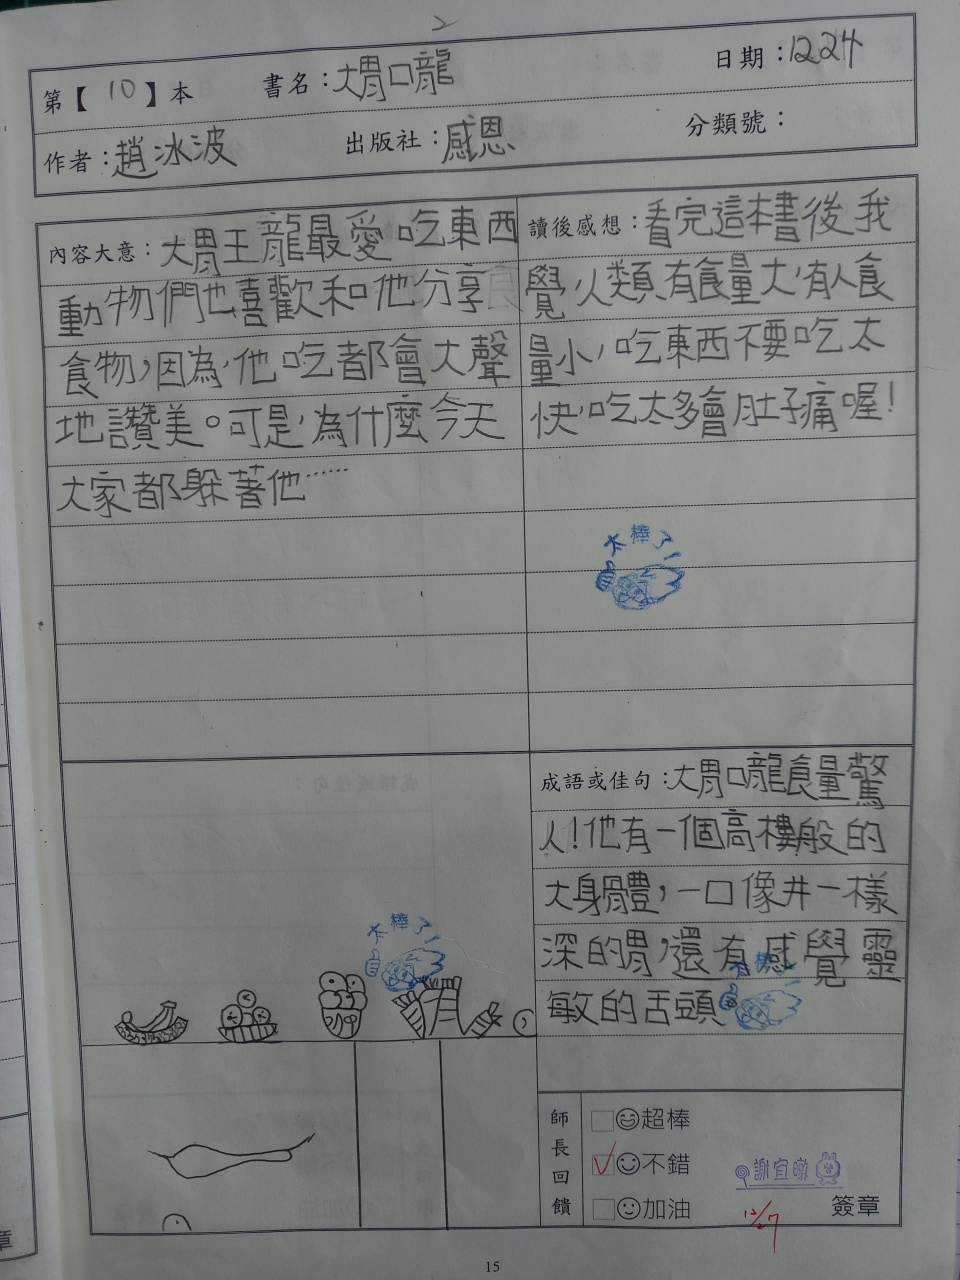 第【10】本 書名：大胃口龍 日期：1224
作者：趙冰波 出版社：感恩 分類號：
內容大意：大胃王龍最愛吃東西
動物們也喜歡和他分享
食物，因為，他吃都會大聲
地讚美。可是，為什麼今天
大家都躲著他……
讀後感想：看完這本書後我
覺，人類有食量大，有人食
量小，吃東西不要吃太
快，吃太多會肚子痛喔！
太棒了！
太棒了！
成語或佳句：大胃口龍食量驚
人！他有一個高樓般的
大身體，一口像井一樣
深的胃，還有感覺靈
敏的舌頭
太棒了！
師長回饋
超棒
✓不錯
加油
謝宜暾
12/27
簽章
15
章